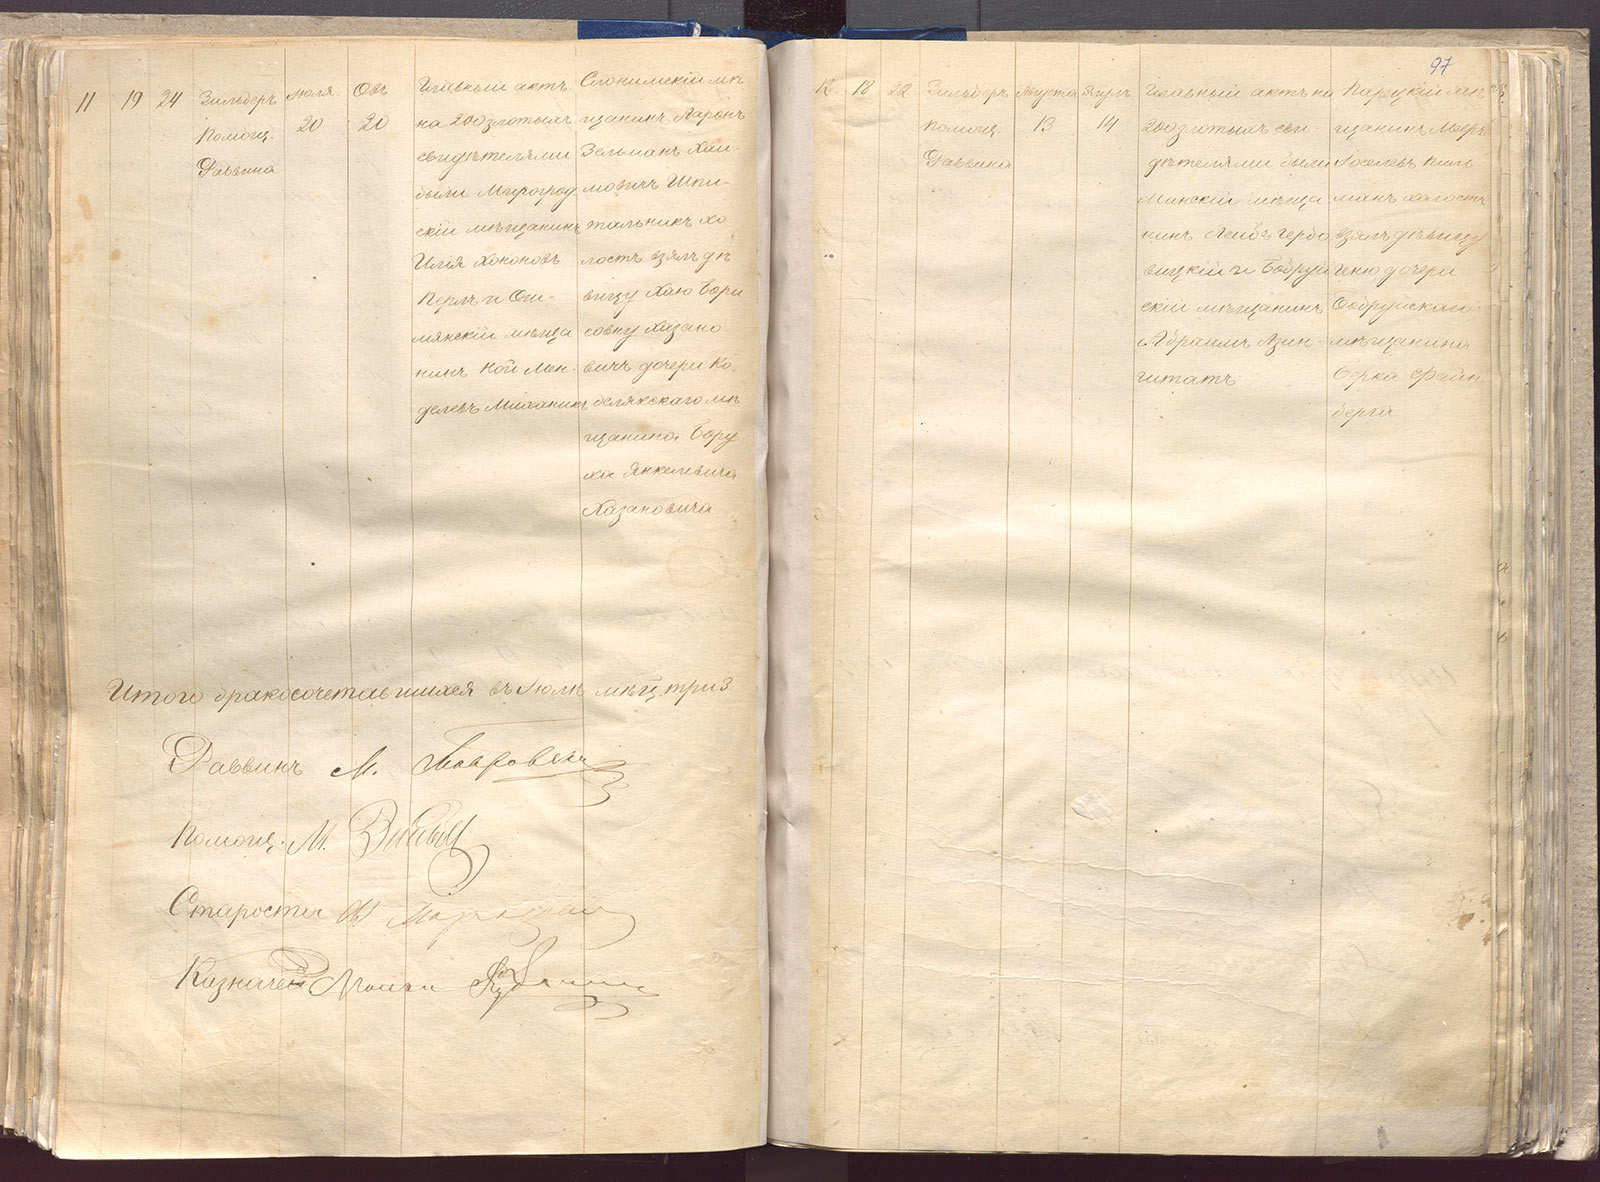 11 19 24
Зильберъ
помощ.
Раввина
Июля
20
Овъ
20
Главный актъ
на 200 злотыхъ
свидѣтелями
были Мирогрод
скій мѣщанинъ
Илія Хононовъ
Перлъ и Ош-
мянскій мѣща
нинъ Ной Мен-
делевъ Миханикъ
Слонимскій мѣ
щанинъ Аронъ
Зельманъ Хаи-
мовичъ Шпи-
тальникъ хо
лостъ взялъ дѣ
вицу Хаю Бори
совну Хазано
вичъ дочери Ко
белякскаго мѣ
щанина Бору
ха Янкелевича
Хазановича
Итого бракосочетавшихся въ Іюлѣ мѣц. три 3
Раввинъ М.
Помощ. М.
Староста
Казначей
97
12. 18 22
Зильберъ
помощ.
Раввина
Августа
13
Элулъ
14
Главный актъ на
200 злотыхъ сви-
дѣтелями были
Минскій мѣща
нинъ Лейбъ Гербо
вицкій и Бобруй
скій мѣщанинъ
Абрамъ Азин-
штатъ
Парецкій мѣ
щанинъ Мееръ
Іоселевъ Киль
манъ холостъ
взялъ дѣвицу
Геню дочери
Бобруйскаго
мѣщанина
Берка Файн
берга